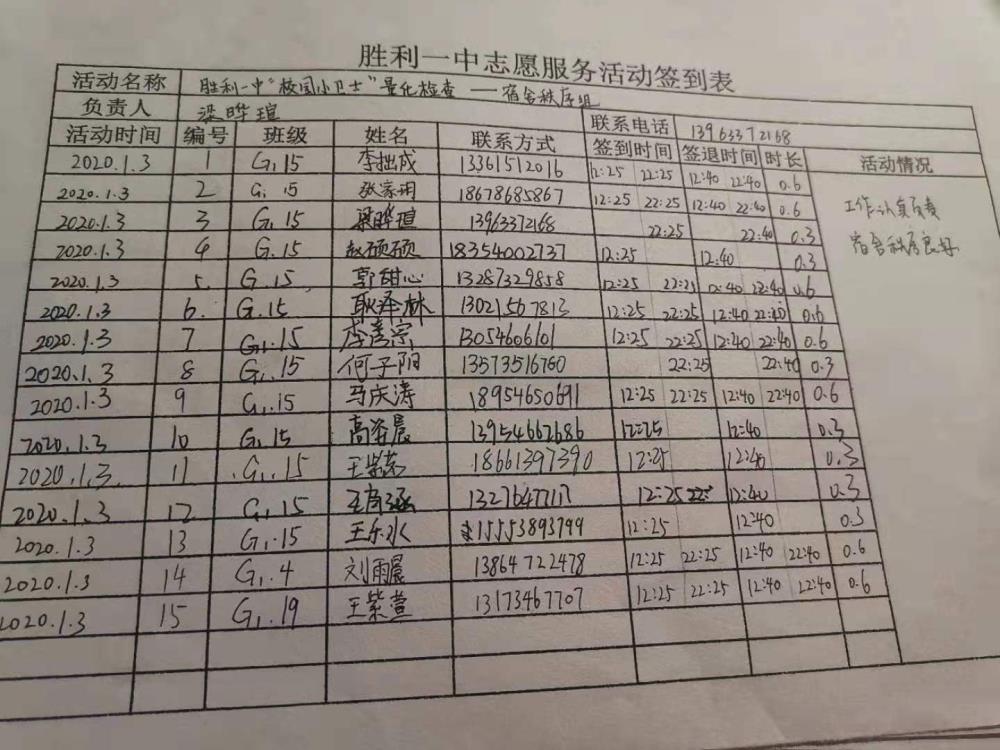 胜利一中志愿服务活动签到表
活动名称 胜利一中"校园小卫士"量化检查——宿舍秩序组
负责人 梁晔瑄 联系电话 13963372168
活动时间 编号 班级 姓名 联系方式 签到时间 签退时间 时长 活动情况
2020.1.3 1 G1.15 李拙成 13361512016 12:25 22:25 12:40 22:40 0.6
2020.1.3 2 G1.15 张家玥 18678685867 12:25 22:25 12:40 22:40 0.6
工作认真负责
2020.1.3 3 G1.15 梁晔瑄 13963372168 22:25 22:40 0.3
宿舍秩序良好
2020.1.3 4 G.15 赵硕硕 18354002737 12:25 12:40 0.3
2020.1.3 5 G.15 郭甜心 13287329858 12:25 22:25 12:40 22:40 0.6
2020.1.3 6 G.15 耿泽林 13021567813 12:25 22:25 12:40 22:40 0.6
2020.1.3 7 G1.15 李彦宗 13054606101 12:25 22:25 12:40 22:40 0.6
2020.1.3 8 G1.15 何子阳 13573516760 22:25 22:40 0.3
2020.1.3 9 G1.15 马庆涛 18954650691 12:25 22:25 12:40 22:40 0.6
2020.1.3 10 G.15 高泽晨 13954662686 12:25 12:40 0.3
2020.1.3 11 G1.15 18661397390 12:25 12:40 0.3
2020.1.3 12 G1.15 13276477117 12:25 22: 12:40 0.3
2020.1.3 13 G1.15 王乐水 15553893799 12:25 12:40 0.3
2020.1.3 14 G1.4 刘雨晨 13864722478 12:25 22:25 12:40 22:40 0.6
2020.1.3 15 G1.19 王紫萱 13173467707 12:25 22:25 12:40 22:40 0.6